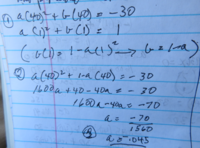 ① a(40)² + b(40) = -30
a(1)² + b(1) = 1
( b(1) = 1 - a(1)² → b = 1-a )
② a(40)² + 1-a(40) = -30
1600a + 40 - 40a = -30
1600a - 40a = -70
a = -70
1560
a = -.045